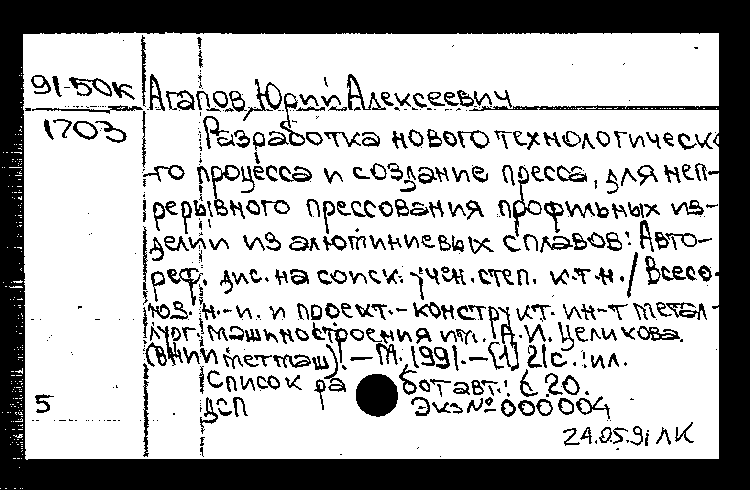 91-50К Агапов, Юрий Алексеевич
1703 Разработка нового технологическо
-го процесса и создание пресса, для неп-
рерывного прессования профильных из-
делий из алюминиевых сплавов: Авто-
реф. дис. на соиск. учен. степ. к.т.н. / Всесо-
юз. н.-и. и проект.-конструкт. ин-т метал-
лург. машиностроения им. А.И. Целикова
(ВНИИметмаш). - М., 1991. - [1] 21с.: ил.
Список работ авт.: с 20.
5 ДСП Экз № 000004
24.05.91 ЛК